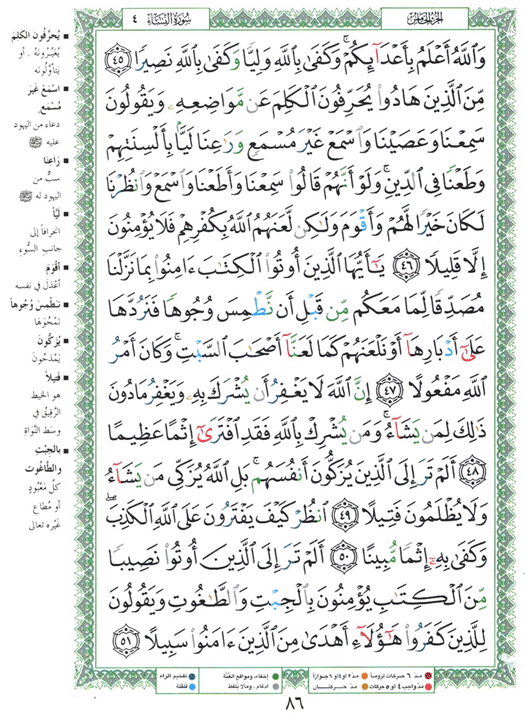 سُورَةُ النِّسَاءِ ٤
الجُزْءُ الخَامِسُ
وَاللَّهُ أَعْلَمُ بِأَعْدَائِكُمْ ۚ وَكَفَىٰ بِاللَّهِ وَلِيًّا وَكَفَىٰ بِاللَّهِ نَصِيرًا ٤٥
مِّنَ الَّذِينَ هَادُوا يُحَرِّفُونَ الْكَلِمَ عَن مَّوَاضِعِهِ وَيَقُولُونَ
سَمِعْنَا وَعَصَيْنَا وَاسْمَعْ غَيْرَ مُسْمَعٍ وَرَاعِنَا لَيًّا بِأَلْسِنَتِهِمْ
وَطَعْنًا فِي الدِّينِ ۚ وَلَوْ أَنَّهُمْ قَالُوا سَمِعْنَا وَأَطَعْنَا وَاسْمَعْ وَانظُرْنَا
لَكَانَ خَيْرًا لَّهُمْ وَأَقْوَمَ وَلَٰكِن لَّعَنَهُمُ اللَّهُ بِكُفْرِهِمْ فَلَا يُؤْمِنُونَ
إِلَّا قَلِيلًا ٤٦ يَا أَيُّهَا الَّذِينَ أُوتُوا الْكِتَابَ آمِنُوا بِمَا نَزَّلْنَا
مُصَدِّقًا لِّمَا مَعَكُم مِّن قَبْلِ أَن نَّطْمِسَ وُجُوهًا فَنَرُدَّهَا
عَلَىٰ أَدْبَارِهَا أَوْ نَلْعَنَهُمْ كَمَا لَعَنَّا أَصْحَابَ السَّبْتِ ۚ وَكَانَ أَمْرُ
اللَّهِ مَفْعُولًا ٤٧ إِنَّ اللَّهَ لَا يَغْفِرُ أَن يُشْرَكَ بِهِ وَيَغْفِرُ مَا دُونَ
ذَٰلِكَ لِمَن يَشَاءُ ۚ وَمَن يُشْرِكْ بِاللَّهِ فَقَدِ افْتَرَىٰ إِثْمًا عَظِيمًا
٤٨ أَلَمْ تَرَ إِلَى الَّذِينَ يُزَكُّونَ أَنفُسَهُم ۚ بَلِ اللَّهُ يُزَكِّي مَن يَشَاءُ
وَلَا يُظْلَمُونَ فَتِيلًا ٤٩ انظُرْ كَيْفَ يَفْتَرُونَ عَلَى اللَّهِ الْكَذِبَ ۖ
وَكَفَىٰ بِهِ إِثْمًا مُّبِينًا ٥٠ أَلَمْ تَرَ إِلَى الَّذِينَ أُوتُوا نَصِيبًا
مِّنَ الْكِتَابِ يُؤْمِنُونَ بِالْجِبْتِ وَالطَّاغُوتِ وَيَقُولُونَ
لِلَّذِينَ كَفَرُوا هَٰؤُلَاءِ أَهْدَىٰ مِنَ الَّذِينَ آمَنُوا سَبِيلًا ٥١
يُحَرِّفُونَ الكَلِمَ
يُغَيِّرُونَهُ . أو
يتأوّلُونه
اسْمَعْ غَيْرَ
مُسْمَعٍ
دعاء من اليهود
عليه ﷺ
رَاعِنَا
سبٌّ من
اليهود له ﷺ
لَيًّا
انحرافًا إلى
جانب السُّوءِ
أقْوَمَ
أعْدَلَ في نفسه
نَطْمِسَ وُجُوهًا
نَمْحُوَها
يُزَكُّونَ
يَمْدَحُونَ
فَتِيلًا
هو الخيط
الرَّقيقُ في
وسَط النَّوَاةِ
بالجِبْتِ
والطَّاغُوت
كلِّ مَعْبُودٍ
أو مُطاع
غَيْرِهِ تعالى
مدّ ٦ حركات لزوماً
مدّ ٢ أو ٤ أو ٦ جوازاً
إخفاء، ومواقع الغُنَّة
تفخيم الراء
مدّ واجب ٤ أو ٥ حركات
مدّ حركتان
إدغام، وما لا يُلفظ
قلقلة
٨٦